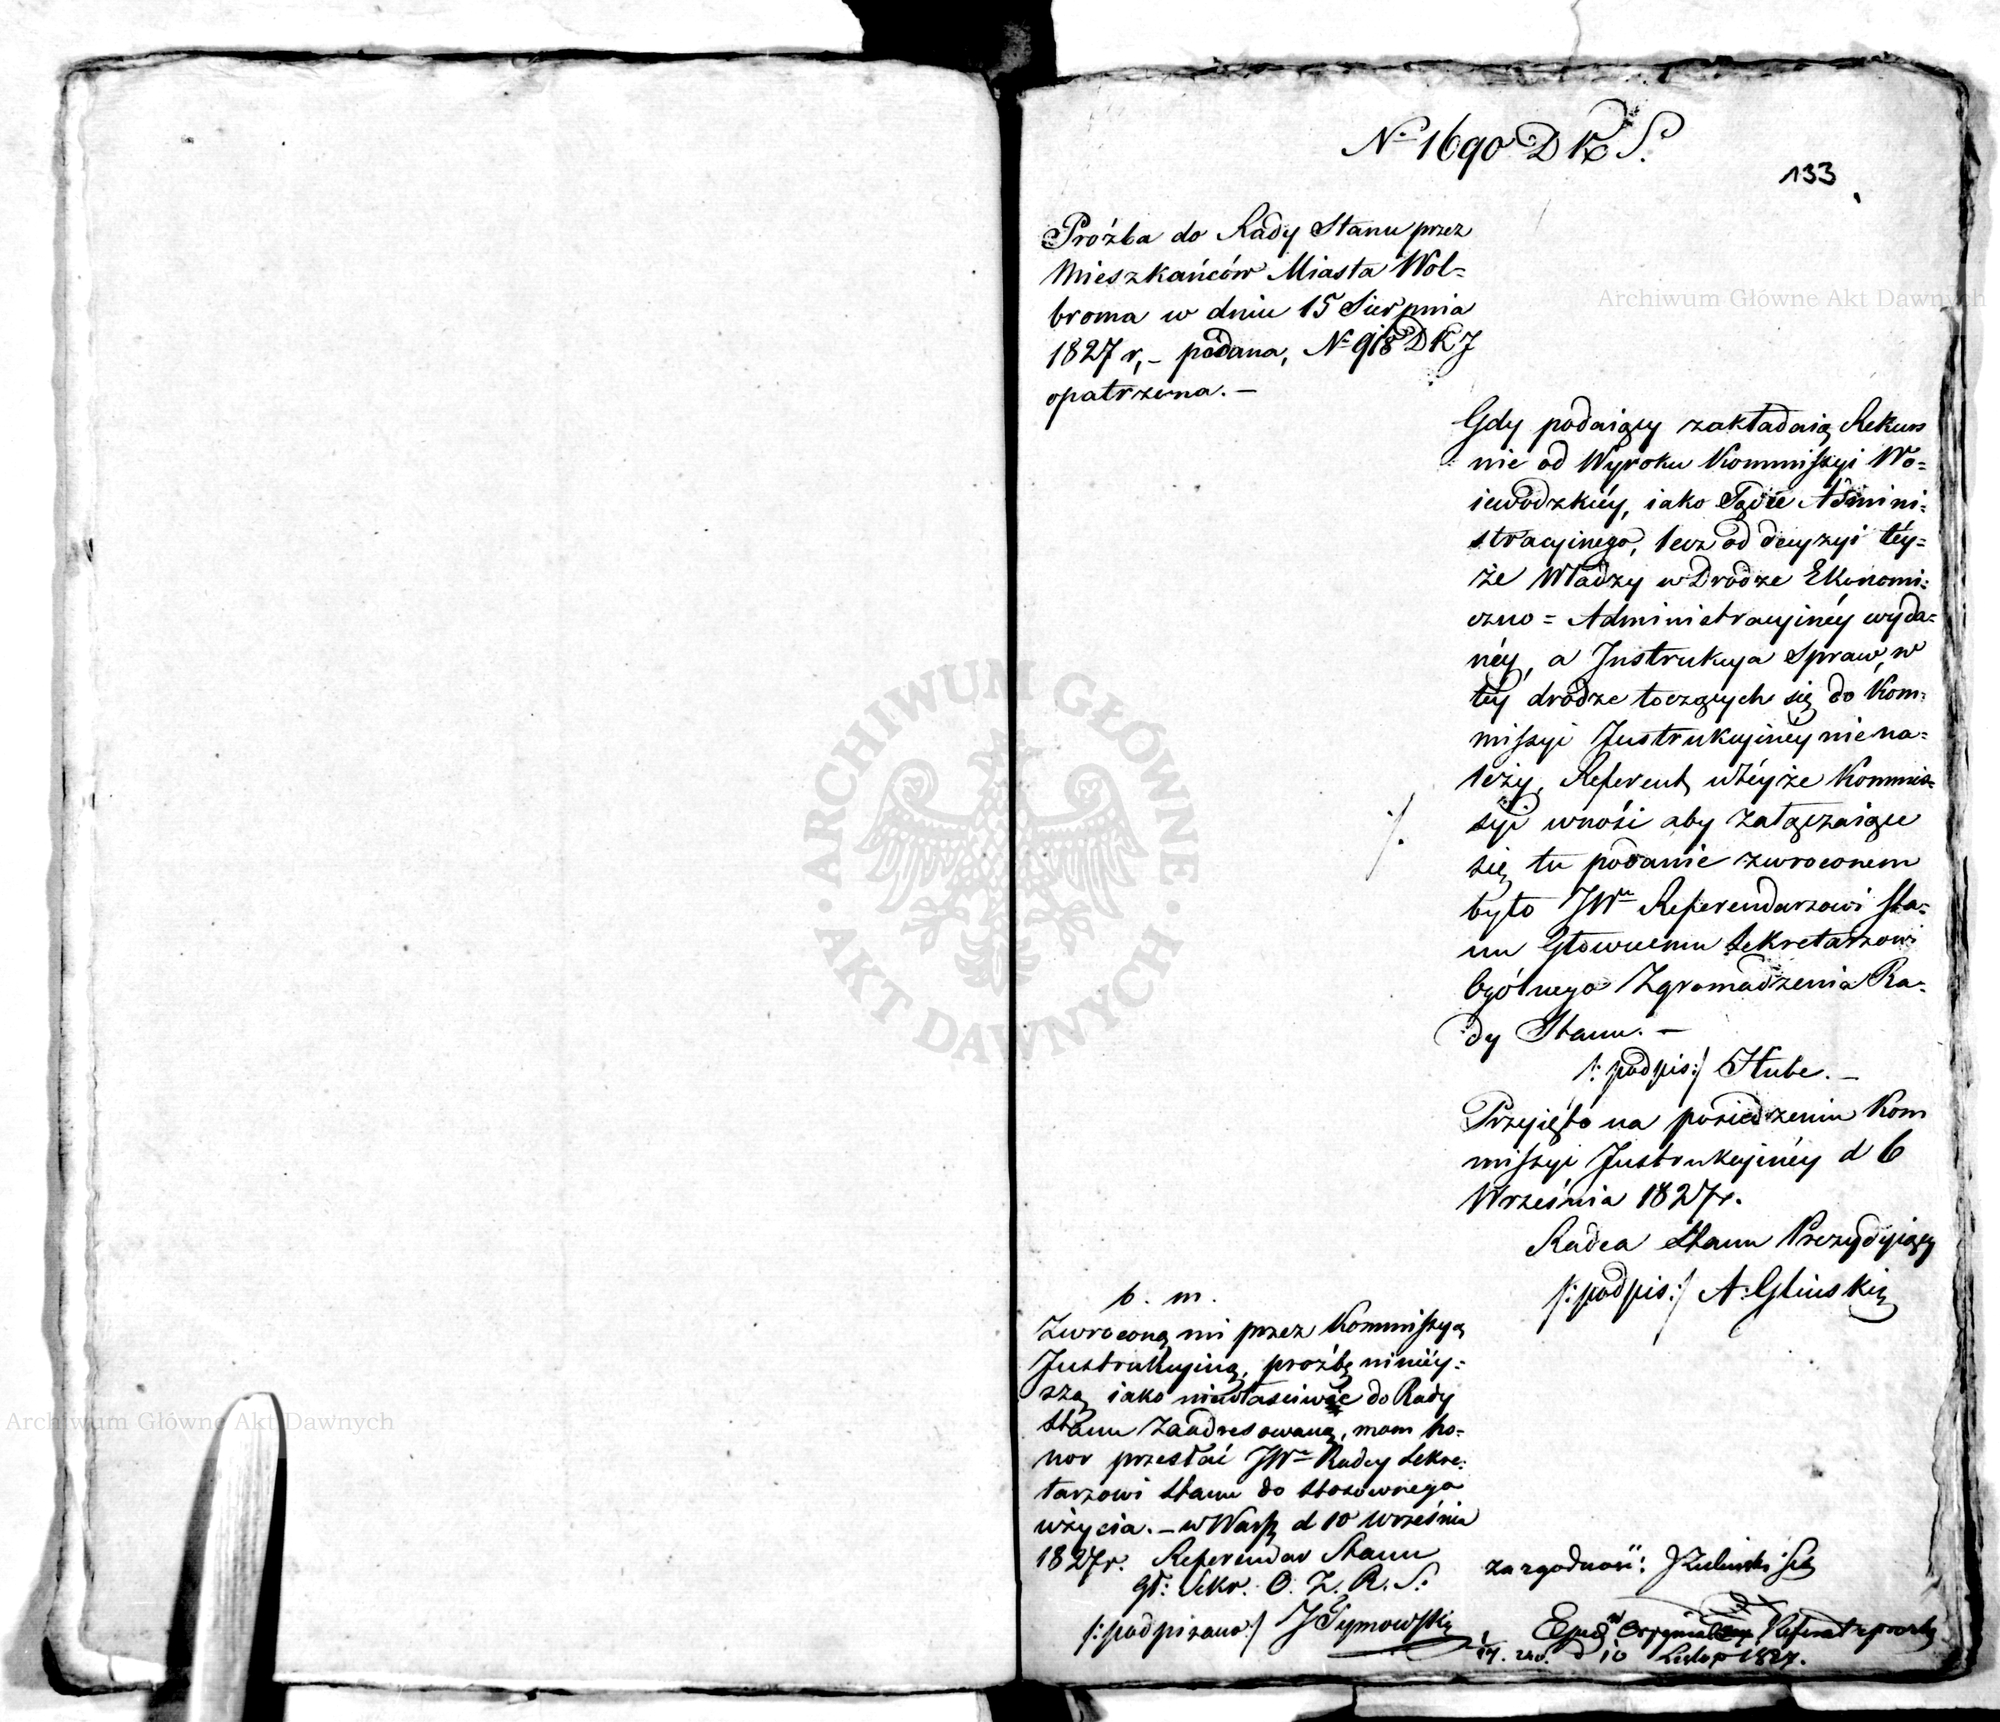 No 1690 D K S.
133
Próźba do Rady Stanu przez
Mieszkańców Miasta Wol=
broma w dniu 15 Sierpnia
1827 r, – podana, No 918 D K J
opatrzona. –
Gdy podaiący zakładaią Rekurs
nie od Wyroku Kommissyi Wo=
iewodzkiéy, iako Sądu Admini=
stracyinego, lecz od decyzyi téy=
że Władzy w Drodze Ekonomi=
czno = Administracyinéy wyda=
néy, a Instrukcya Spraw, w
téy drodze toczących się do Kom=
missyi Instrukcyinéy nie na=
leży, Referent w téyże Kommis=
syi wnosi aby załączaiące
się tu podanie zwroconem
było JWu Referendarzowi Sta=
nu Głownemu Sekretarzowi
Ogólnego Zgromadzenia Ra=
dy Stanu. –
/: podpis :/ Hube. –
Przyięto na posiedzeniu Kom
missyi Instrukcyinéy d 6
Września 1827 r.
Radca Stanu Prezyduiący
/: podpis :/ A. Gliński
b. m.
Zwroconą mi przez Kommissyą
Instrukcyiną, proźbę niniey=
szą iako niewłaściwie do Rady
Stanu zaadresowaną, mam ho=
nor przesłać JWu Radcy Sekre=
tarzowi Stanu do stosownego
użycia. – w Warsz d 10 Września
1827 r. Referendar Stanu
gł: Sekr. O. Z. R. S:
/: podpisano :/ J Tymowski
za zgodność:
Orginał Referat
d 10 Listop 1827.
ARCHIWUM GŁÓWNE
AKT DAWNYCH
Archiwum Główne Akt Dawnych
Archiwum Główne Akt Dawnych